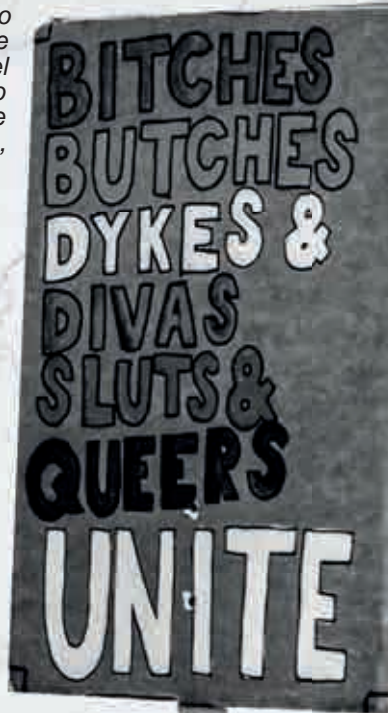 o
e
el
o
e
,
BITCHES
BUTCHES
DYKES &
DIVAS
SLUTS &
QUEERS
UNITE